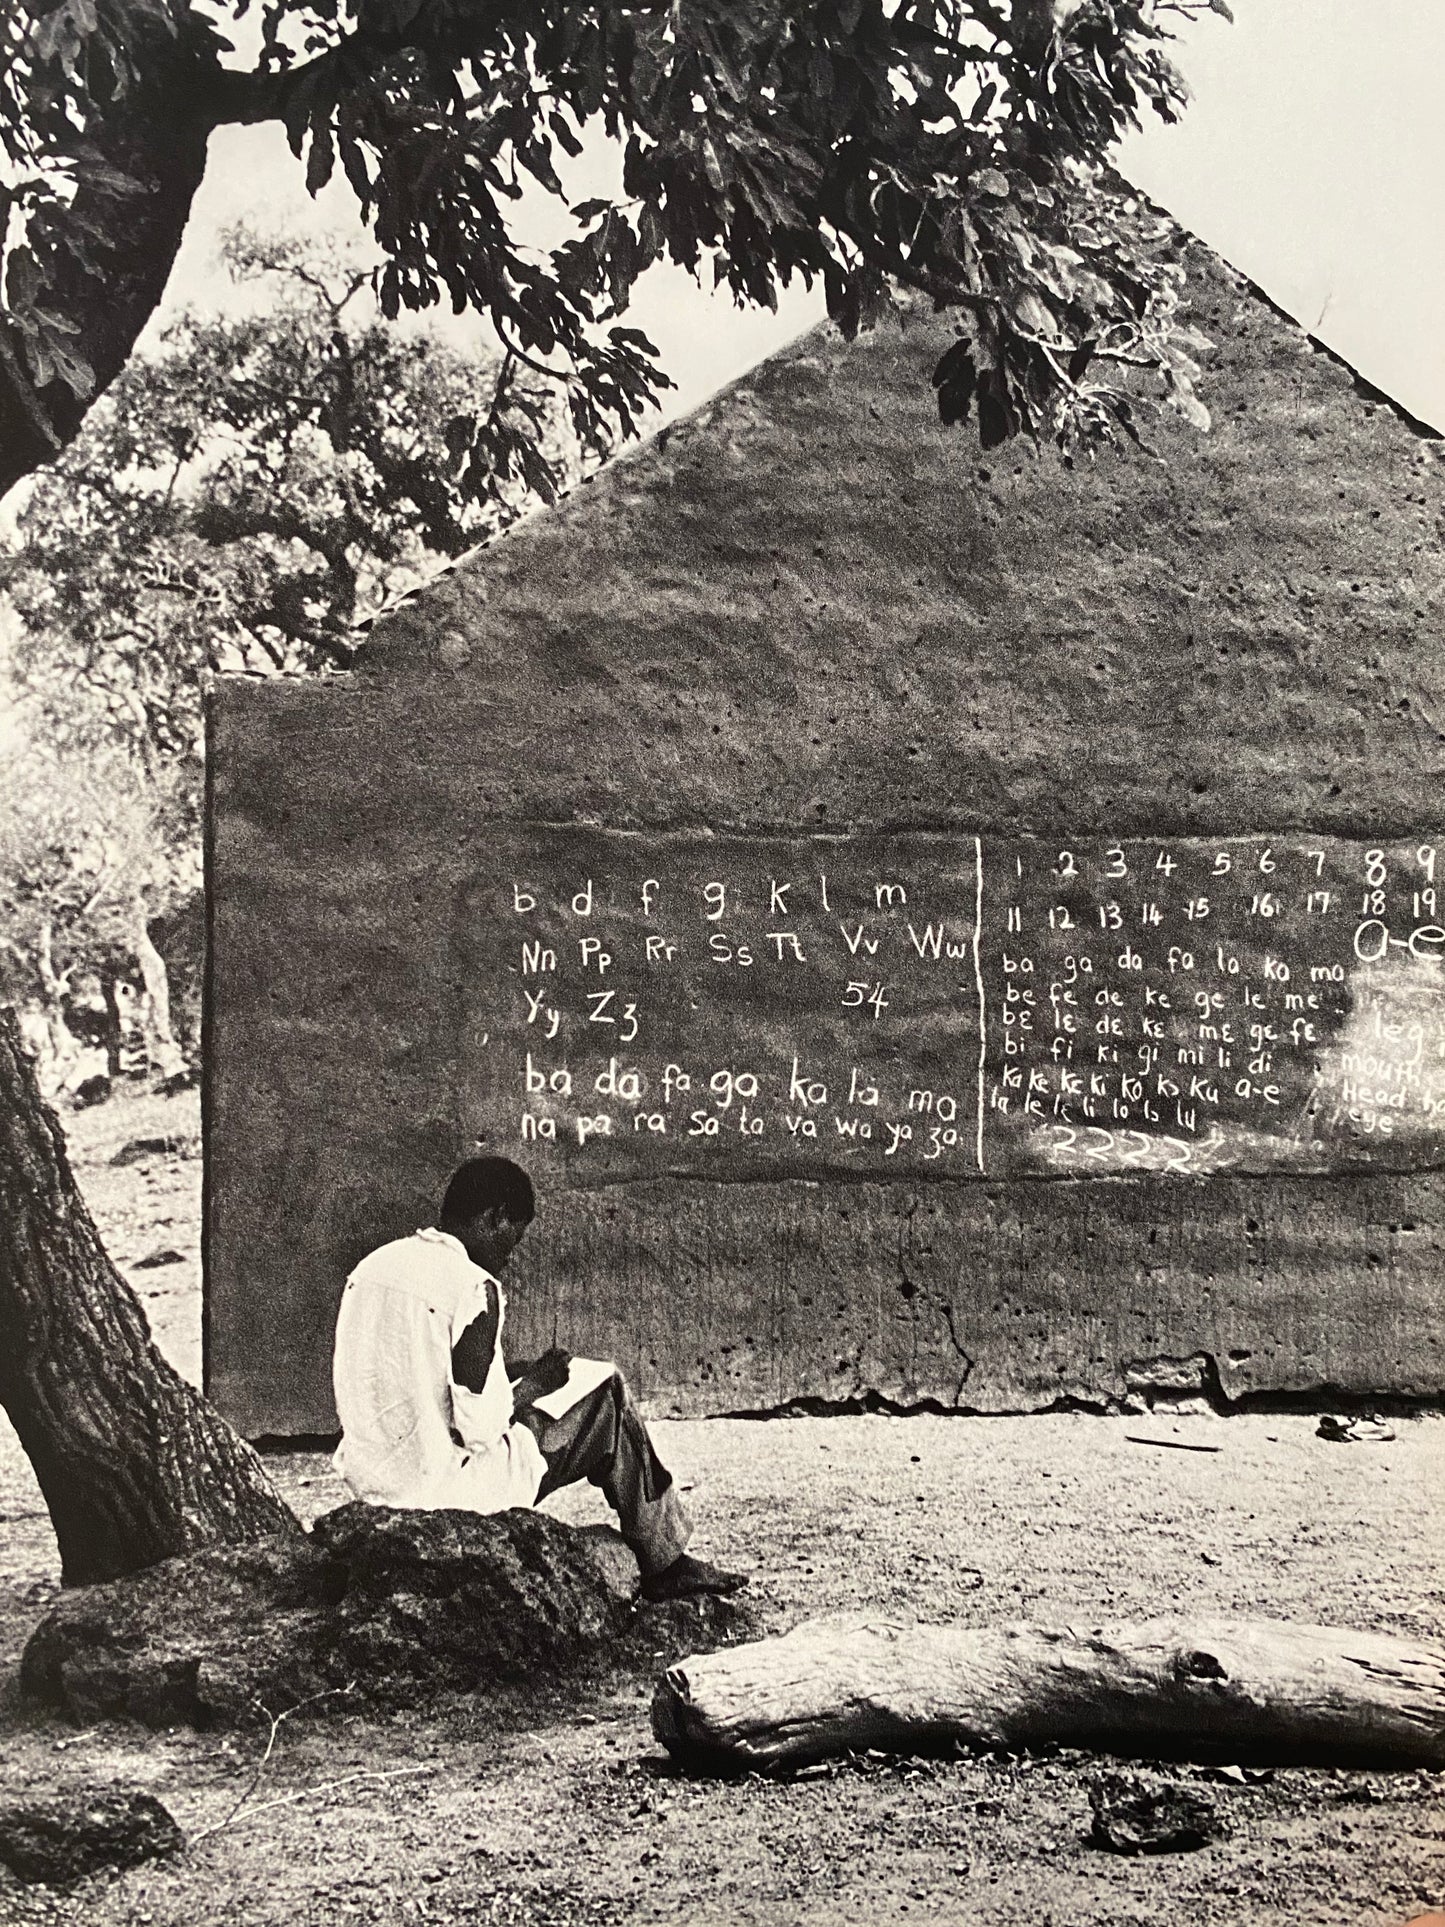 b d f g k l m
Nn Pp Rr Ss Tt Vv Ww
Yy Zʒ 54
ba da fa ga ka la ma
na pa ra sa ta va wa ya ʒa
1 2 3 4 5 6 7 8 9
11 12 13 14 15 16 17 18 19
a-e
ba ga da fa la ka ma
be fe de ke ge le me
bɛ lɛ dɛ kɛ mɛ gɛ fɛ
bi fi ki gi mi li di
ka ke kɛ ki ko kɔ ku a-e
la le lɛ li lo lɔ lu
2222
leg
mouth
Head
eye